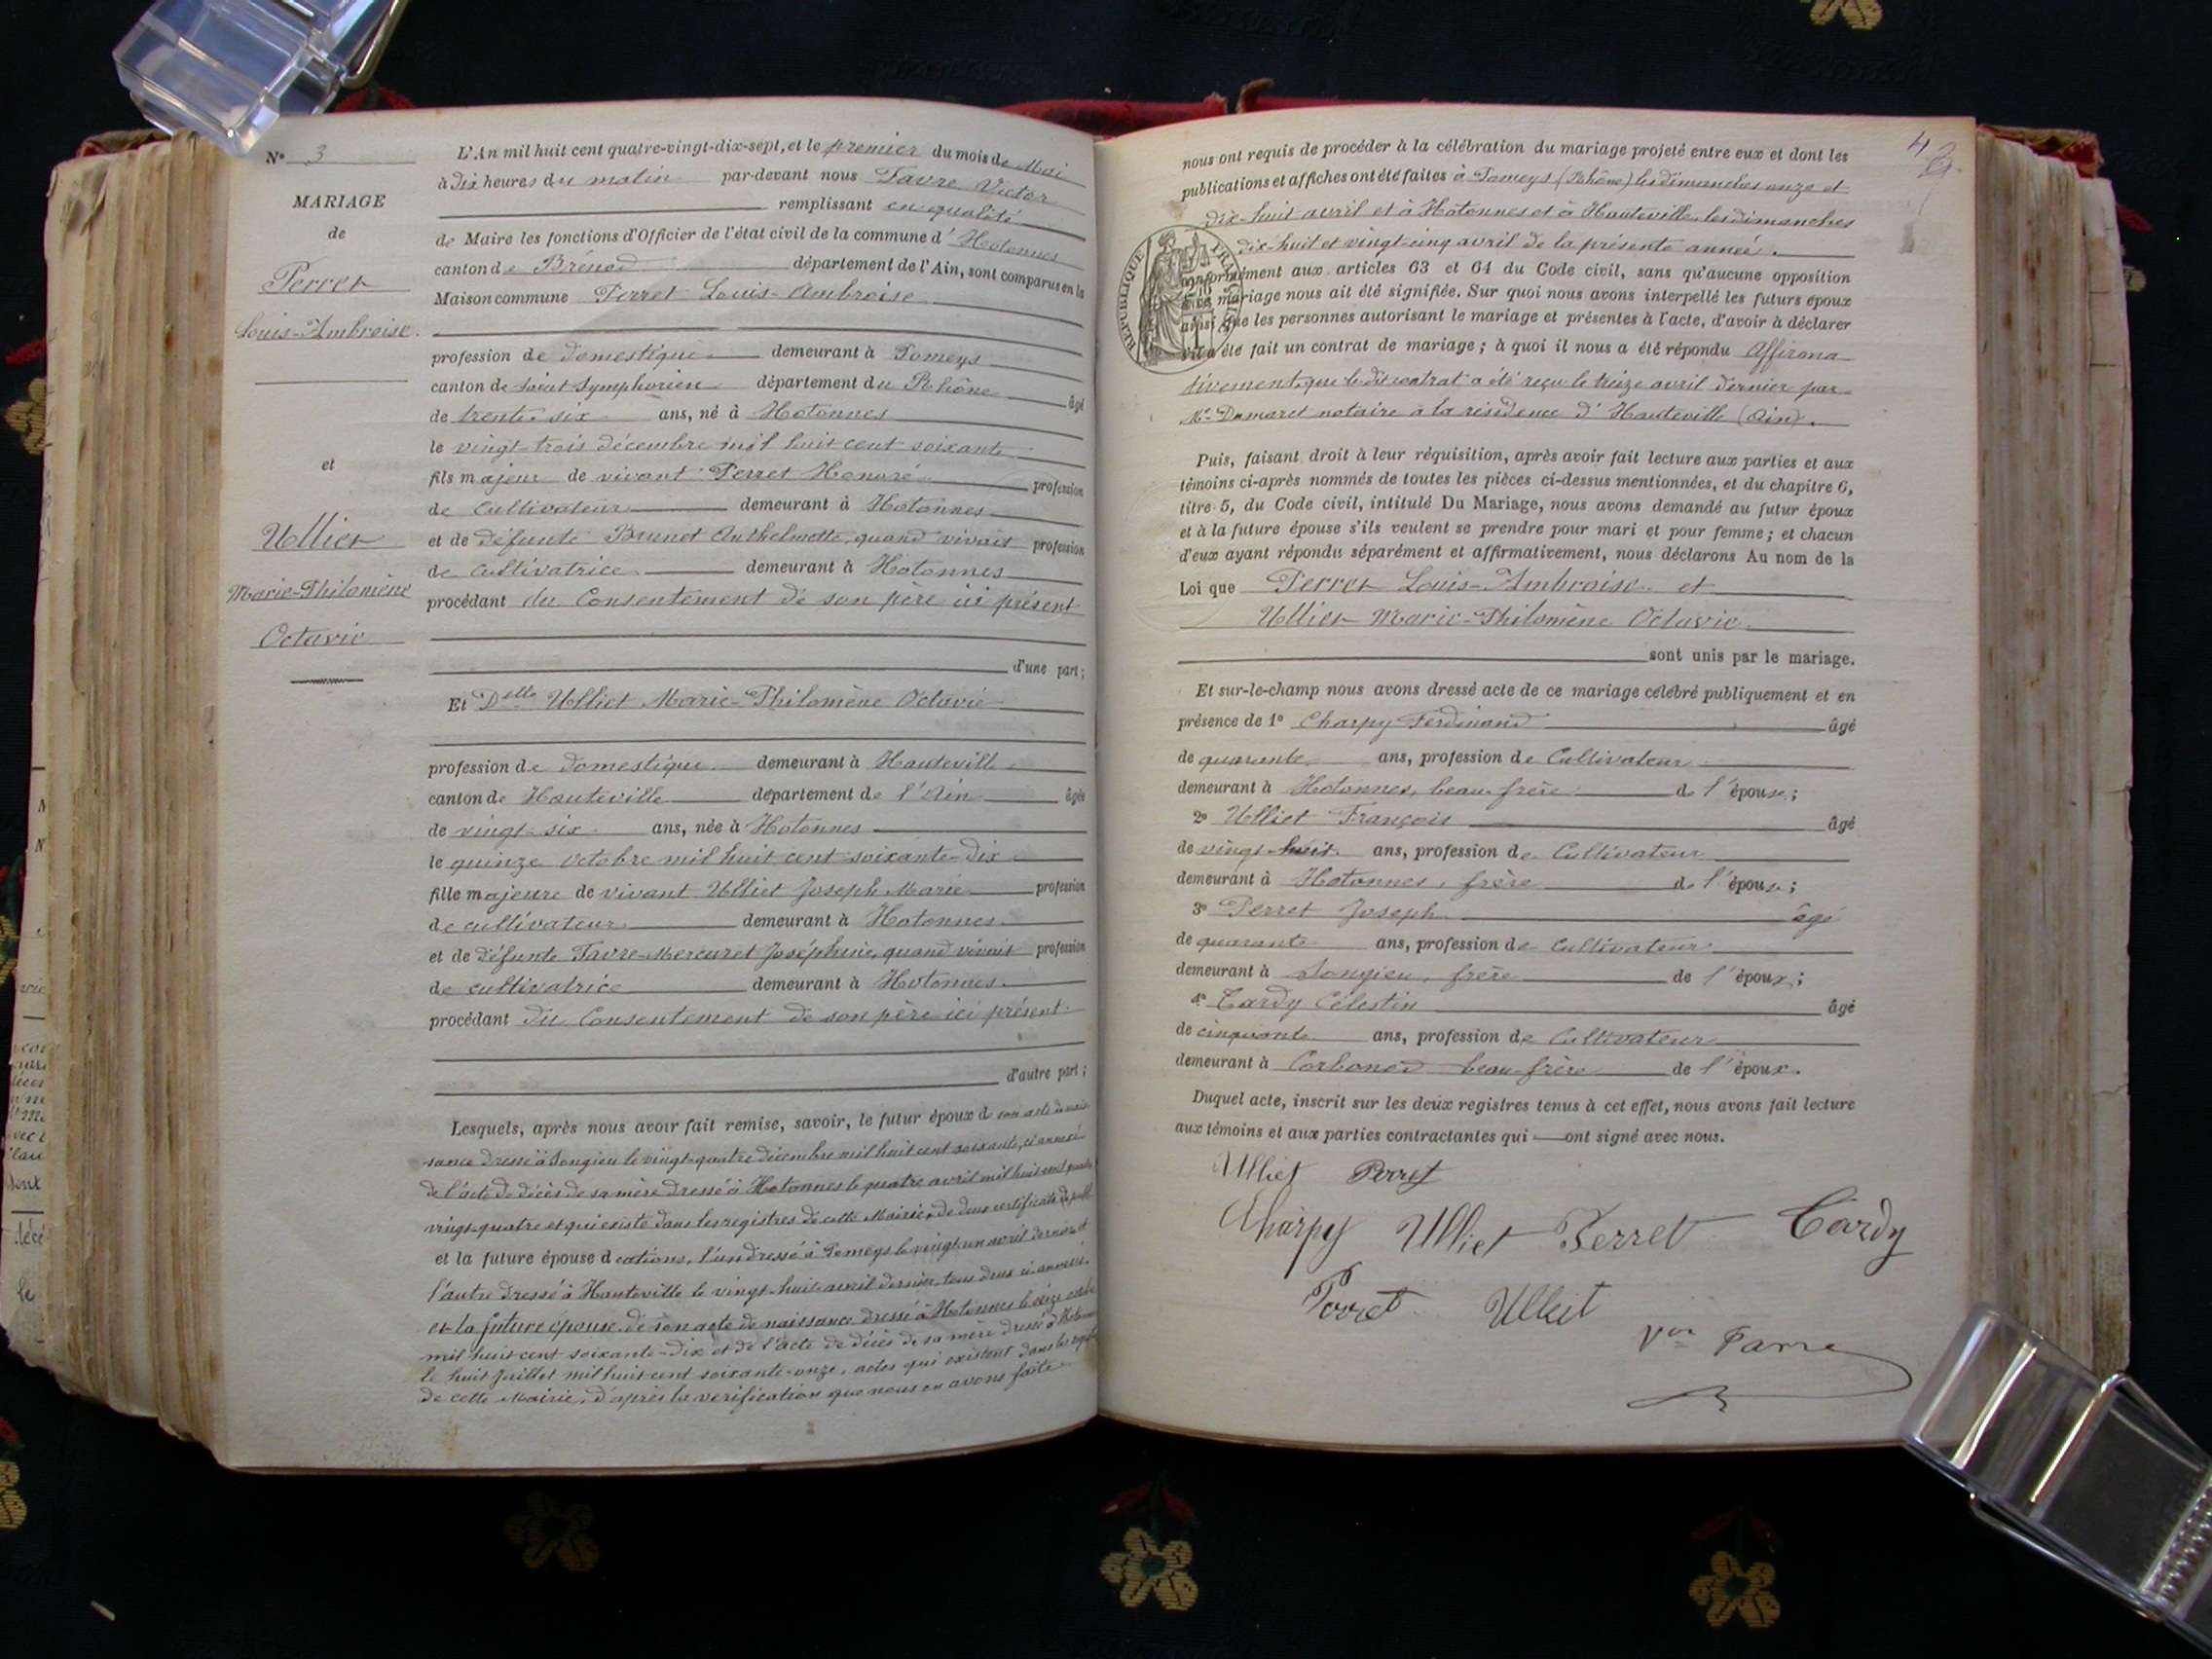 N° 3
MARIAGE
de
Perret
Louis-Ambroise.
et
Ulliet
Marie-Philomène
Octavie
L'An mil huit cent quatre-vingt-dix-sept, et le premier du mois de Mai
à dix heures du matin par-devant nous Favre Victor
remplissant en qualité
de Maire les fonctions d'Officier de l'état civil de la commune d' Hotonnes
canton de Brénod département de l'Ain, sont comparus en la
Maison commune Perret Louis-Ambroise
profession de domestique demeurant à Pomeys
canton de Saint Symphorien département du Rhône âgé
de trente-six ans, né à Hotonnes
le vingt-trois décembre mil huit cent soixante
fils majeur de vivant Perret Honoré profession
de cultivateur demeurant à Hotonnes
et de défunte Brunet Anthelmette, quand vivait profession
de cultivatrice demeurant à Hotonnes
procédant du Consentement de son père ici présent
d'une part;
Et Delle Ulliet Marie-Philomène Octavie
profession de domestique demeurant à Hauteville
canton de Hauteville département de l'Ain âgée
de vingt-six ans, née à Hotonnes
le quinze octobre mil huit cent soixante-dix
fille majeure de vivant Ulliet Joseph Marie profession
de cultivateur demeurant à Hotonnes
et de défunte Favre-Mercuret Joséphine, quand vivait profession
de cultivatrice demeurant à Hotonnes
procédant du Consentement de son père ici présent
d'autre part;
Lesquels, après nous avoir fait remise, savoir, le futur époux d son acte de nais
sance dressé à Songieu le vingt-quatre décembre mil huit cent soixante, ci annexé
de l'acte de décès de sa mère dressé à Hotonnes le quatre avril mil huit cent quatre
vingt-quatre et qui existe dans les registres de cette Mairie, de deux certificats de publi
et la future épouse d cations, l'un dressé à Pomeys le vingt-un avril dernier et
l'autre dressé à Hauteville le vingt-huit avril dernier, tous deux ci-annexés.
et la future épouse, de son acte de naissance dressé à Hotonnes le seize octobre
mil huit cent soixante-dix et de l'acte de décès de sa mère dressé à Hotonnes
le huit Juillet mil huit cent soixante-onze, actes qui existent dans les registres
de cette Mairie, d'après la vérification que nous en avons faite
nous ont requis de procéder à la célébration du mariage projeté entre eux et dont les
publications et affiches ont été faites à Pomeys (Rhône) les dimanches onze et
dix-huit avril et à Hotonnes et à Hauteville, les dimanches
dix-huit et vingt-cinq avril de la présente année.
conformément aux articles 63 et 64 du Code civil, sans qu'aucune opposition
à ce mariage nous ait été signifiée. Sur quoi nous avons interpellé les futurs époux
ainsi que les personnes autorisant le mariage et présentes à l'acte, d'avoir à déclarer
s'il a été fait un contrat de mariage; à quoi il nous a été répondu Affirma
tivement, que le dit contrat a été reçu le treize avril dernier par
Me Dumaret notaire à la résidence d'Hauteville (Ain).
Puis, faisant droit à leur réquisition, après avoir fait lecture aux parties et aux
témoins ci-après nommés de toutes les pièces ci-dessus mentionnées, et du chapitre 6,
titre 5, du Code civil, intitulé Du Mariage, nous avons demandé au futur époux
et à la future épouse s'ils veulent se prendre pour mari et pour femme; et chacun
d'eux ayant répondu séparément et affirmativement, nous déclarons Au nom de la
Loi que Perret Louis-Ambroise et
Ulliet Marie-Philomène Octavie
sont unis par le mariage.
Et sur-le-champ nous avons dressé acte de ce mariage célébré publiquement et en
présence de 1° Charpy Ferdinand âgé
de quarante ans, profession de Cultivateur
demeurant à Hotonnes, beau-frère de l'épouse;
2° Ulliet François âgé
de vingt-huit ans, profession de Cultivateur
demeurant à Hotonnes, frère de l'épouse;
3° Perret Joseph âgé
de quarante ans, profession de Cultivateur
demeurant à Songieu, frère de l'époux;
4° Tardy Célestin âgé
de cinquante ans, profession de Cultivateur
demeurant à Corbonod beau-frère de l'époux.
Duquel acte, inscrit sur les deux registres tenus à cet effet, nous avons fait lecture
aux témoins et aux parties contractantes qui ont signé avec nous.
Ulliet Perret
Charpy Ulliet Perret Tardy
Perret Ulliet
Vor Favre